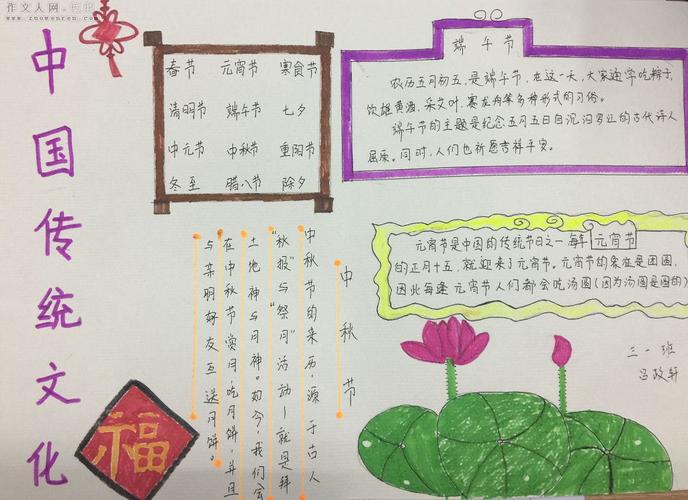 作文人网
www.zuowenren.com
中国传统文化
春节 元宵节 寒食节
清明节 端午节 七夕
中元节 中秋节 重阳节
冬至 腊八节 除夕
端午节
农历五月初五,是端午节,在这一天,大家通常吃粽子,
饮雄黄酒,采艾叶,赛龙舟等多种形式的习俗。
端午节的主题是纪念五月五日自沉汨罗江的古代诗人
屈原。同时,人们也祈愿吉祥平安。
元宵节
元宵节是中国的传统节日之一每年
的正月十五,就迎来了元宵节。元宵节的是团圆,
因此每逢元宵节人们都会吃汤圆(因为汤圆是圆的)
中秋节
中秋节的来历,源于古人
"秋报"与"祭月"活动—就是拜
土地神与月神。如今,我们会
在中秋节赏月,吃月饼,并且
与亲朋好友互送月饼。
福
三一班
吕政轩